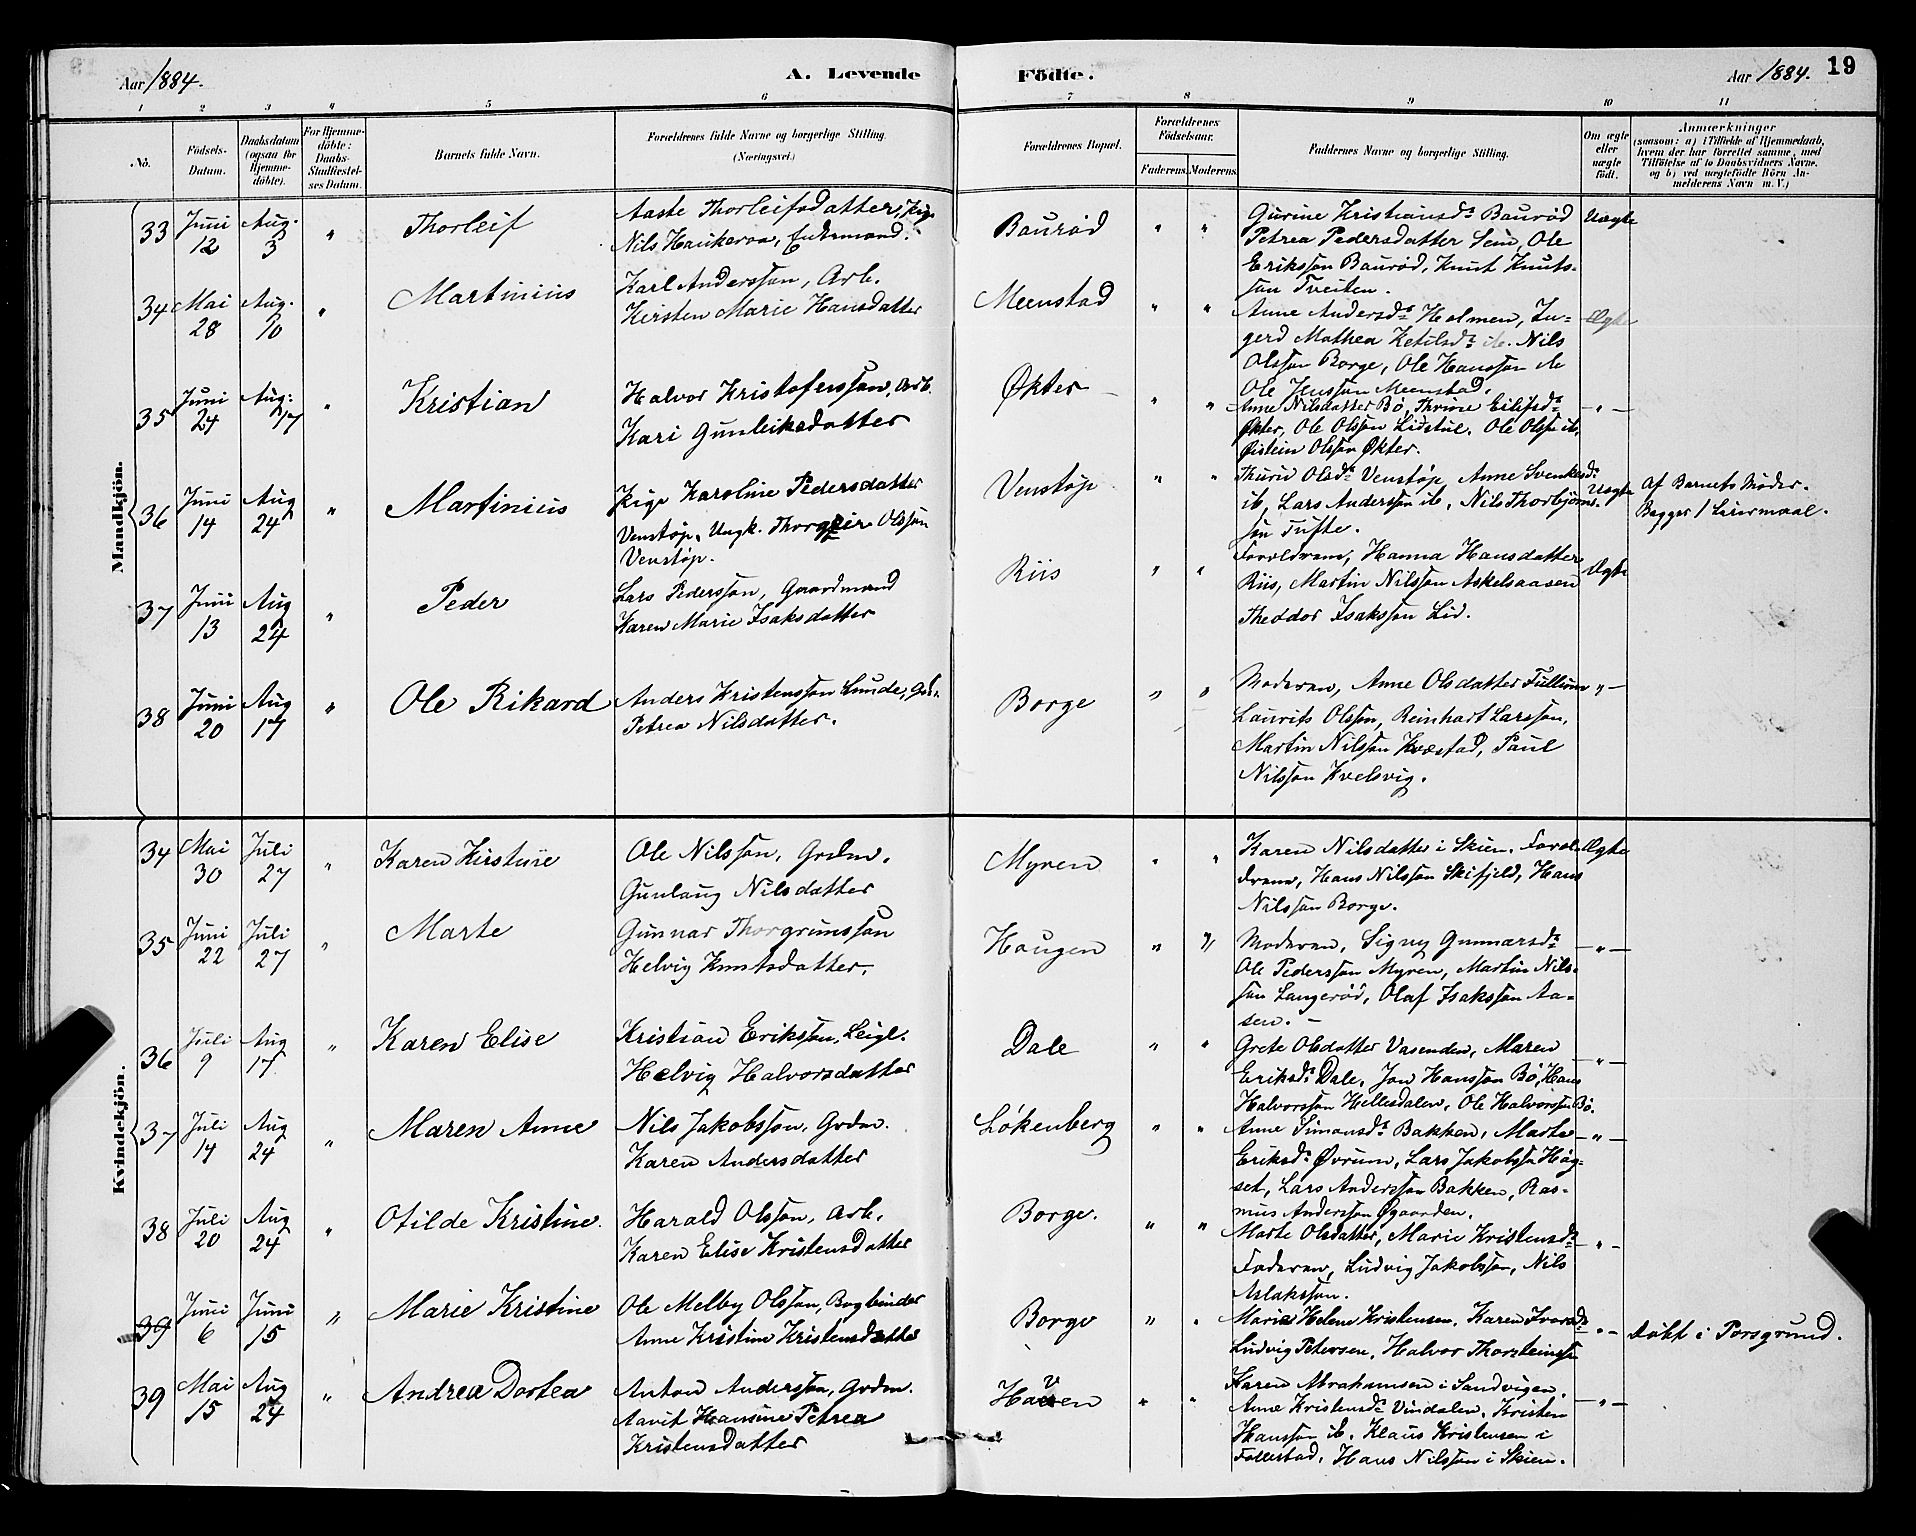 Aar 1884.
A. Levende Födte.
Aar 1884. 19
1 2 3 4 5 6 7 8 9 10 11
No.
Födsels-Datum.
Daabsdatum (ogsaa for Hjemme-döbte).
For Hjemme-döbte: Daabs-Stadfæstel-ses Datum.
Barnets fulde Navn.
Forældrenes fulde Navne og borgerlige Stilling.
(Næringsvei.)
Forældrenes Bopæl.
Forældrenes Födselsaar.
Faderens. Moderens.
Faddernes Navne og borgerlige Stilling.
Om ægte eller uægte födt.
Anmærkninger
(saasom: a) i Tilfælde af Hjemmedaab,
hvem der har forrettet samme, med
Tilföielse af to Daabsvidners Navne,
og b) ved uægtefödte Börn An-
melderens Navn m. V.)
Mandkjön.
33 Juni 12 Aug. 3 " Thorleif
Aaste Thorleifsdatter, Pig.
Nils Haukeraa, Enkemand.
Baurød " "
Gurine Kristiansdr Baurød
Petrea Pedersdatter Sem, Ole
Eriksson Baurød, Knut Knuts-
son Tveiten.
Uægte
34 Mai 28 Aug. 10 " Martinius
Karl Andersson, Arb.
Kirsten Marie Hansdatter
Meenstad " "
Anne Andersdr Holmen, In-
gerd Mathea Ketilsdr ib. Nils
Olsson Borge, Ole Hansson ib
Ole Jensson Meenstad.
Ægte
35 Juni 24 Aug. 17 " Kristian
Halvor Kristofersson, Arb.
Kari Gunleiksdatter
Økter " "
Anne Nilsdatter Bö, Thrine Eilifsdr
Økter, Ole Olsson Lidstul. Ole Olss ib,
Øistein Olsson Økter.
- " -
36 Juni 14 Aug 24 " Martinius
Pige Karoline Pedersdatter
Venstøp, Ungk. Thorgeir Olsson
Venstøp.
Venstøp " "
Thurid Olsdr Venstøp, Anne Svenkesdr
ib, Lars Andersson ib, Nils Thorbjørns-
søn Tufte.
Uægte
Af Barnets Moder.
Begges 1 Leiermaal.
37 Juni 13 Aug 24 " Peder
Lars Pedersson, Gaardmand
Karen Marie Isaksdatter
Riis " "
Foreldrene, Hanna Hansdatter
Riis, Martin Nilsson Askelsaasen
Theodor Isaksson Lid.
Ægte
38 Juni 20 Aug 17 " Ole Rikard
Anders Kristensson Lunde,
Petrea Nilsdatter.
Borge " "
Moderen, Anne Olsdatter
Laurits Olsson, Reinhart Larsson,
Martin Nilsson Kvæstad, Paul
Nilsson Kvelsvig.
" -
Kvindekjön.
34 Mai 30 Juli 27 " Karen Kirstine
Ole Nilsson, Grdm.
Gunlaug Nilsdatter
Myren " "
Karen Nilsdatter i Skien. Forel-
drene, Hans Nilsson Skifjeld, Hans
Nilsson Borge.
Ægte
35 Juni 22 Juli 27 " Marte
Gunnar Thorgrimsson
Helvig Knutsdatter.
Haugen " "
Moderen, Signy Gunnarsdr
Ole Pedersson Myren, Martin Nils-
son Langerød, Olaf Isaksson Aa-
sen. -
- " -
36 Juli 9 Aug 17 " Karen Elise
Kristian Eriksson, Leigl.
Helvig Halvorsdatter
Dale " "
Grete Olsdatter Vasenden, Maren
Eriksdr Dale, Jon Hansson Bö, Hans
Halvorsson Hellesdalen, Ole Halvorsson Bö.
- " -
37 Juli 14 Aug 24 " Maren Anne
Nils Jakobsson, Grdm.
Karen Andersdatter
Løkenberg " "
Anne Simonsdr Bakken, Marte
Eriksdr Øvrum, Lars Jakobssn Høg-
set, Lars Andersson Bakken, Ras-
mus Andersson Øgaarden.
- " -
38 Juli 20 Aug 24 " Otilde Kristine.
Harald Olsson, Arb.
Karen Elise Kristensdatter
Borge. " "
Marte Olsdatter, Marie Kristensdr
Faderen, Ludvig Jakobsson, Nils
Aslaksson.
- " -
39 Juni 6 Juni 15 " Marie Kristine
Ole Melby Olsson, Bogbinder
Anne Kristine Kristensdatter
Borge " "
Marie Helene Kristensen, Karen Ivarsdr
Ludvig Petersen, Halvor Thorsteinssn
" -
Døbt i Porsgrund.
39 Mai 15 Aug 24 " Andrea Dortea
Anton Andersson, Grdm.
Aavit Hansine Petrea
Kristensdatter
Haven " "
Karen Abrahamsen i Sandvigen.
Anne Kristensdr Vindalen, Kristen
Hansson ib. Klaus Kristensen i
Follestad, Hans Nilsson i Skien.
- " -